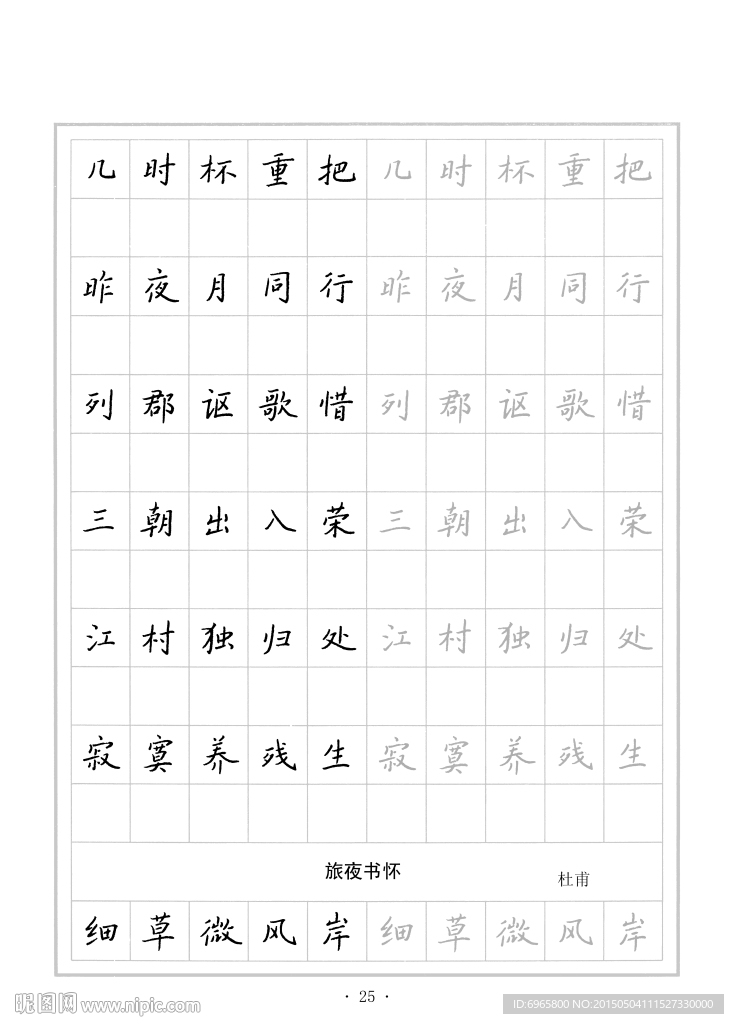 几时杯重把几时杯重把
昨夜月同行昨夜月同行
列郡讴歌惜列郡讴歌惜
三朝出入荣三朝出入荣
江村独归处江村独归处
寂寞养残生寂寞养残生
旅夜书怀
杜甫
细草微风岸细草微风岸
· 25 ·
昵图网 www.nipic.com
ID:6965800 NO:20150504111527330000